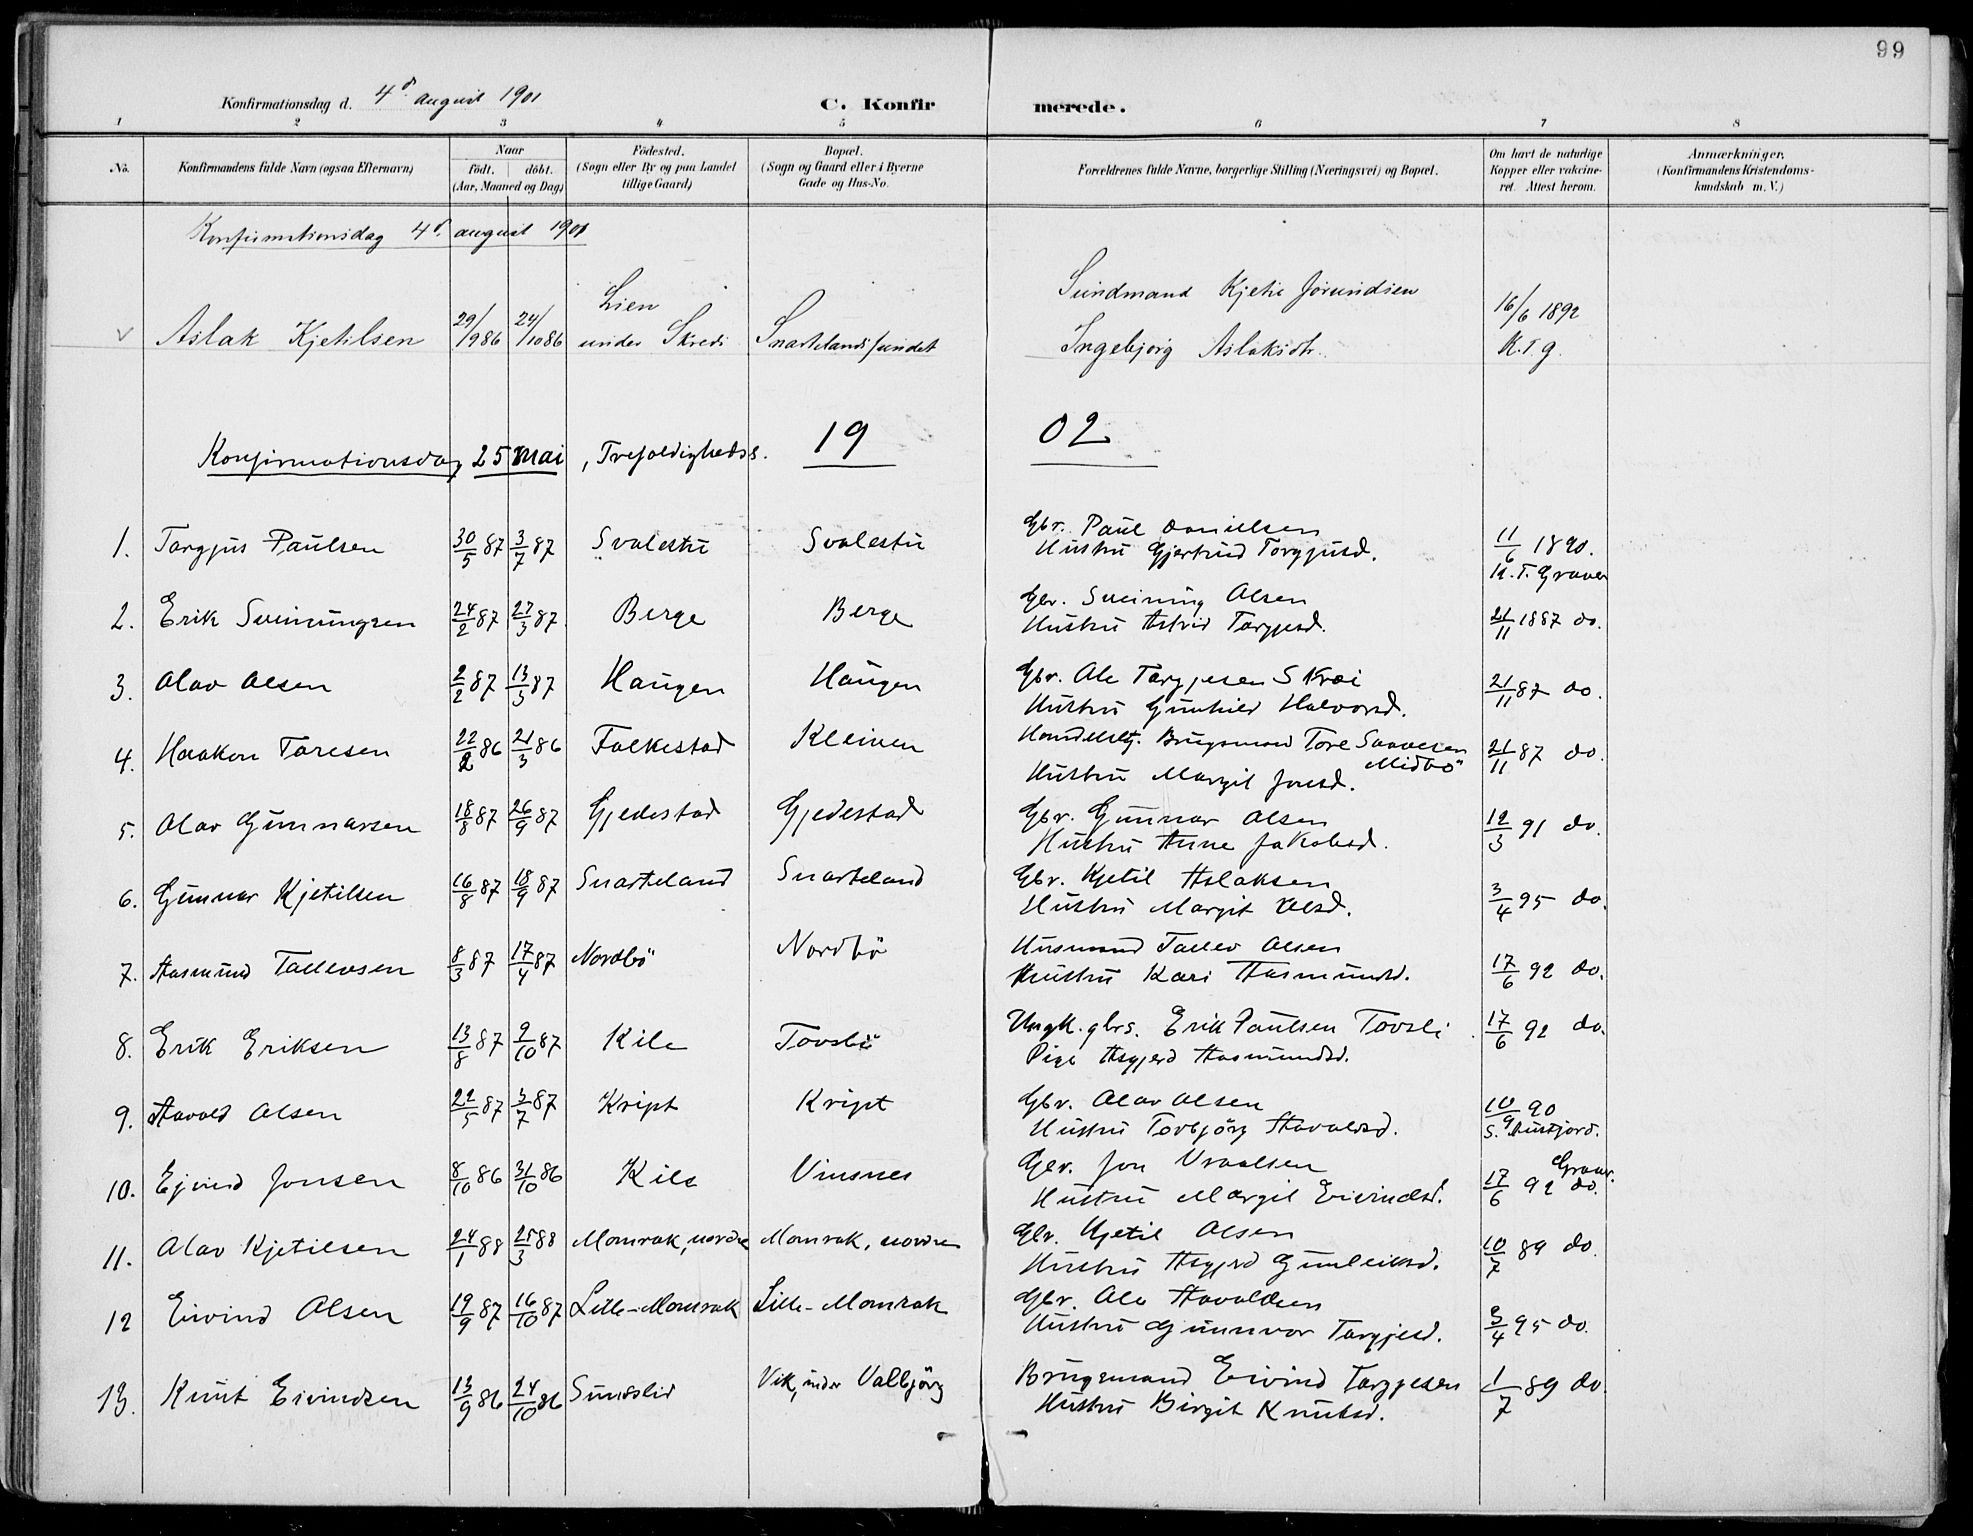 99
Konfirmationsdag d. 4de august 1901 C. Konfirmerede.
1 2 3 4 5 6 7 8
No. Konfirmandens fulde Navn (ogsaa Efternavn) Naar födt. döbt. (Aar, Maaned og Dag) Födested. (Sogn eller By og paa Landet tillige Gaard) Bopæl. (Sogn og Gaard eller i Byerne Gade og Hus-No. Forældrenes fulde Navne, borgerlige Stilling (Næringsvei) og Bopæl. Om havt de naturlige Kopper eller vakcineret. Attest herom. Anmærkninger. (Konfirmandens Kristendomskundskab m. V.)
Konfirmationsdag 4de august 1901
Aslak Kjetilsen 29/9 86 24/10 86 Lien under Skredi Snartelandssundet Sundmand Kjetil Jørundsen
Ingebjørg Aslaksdtr. 16/6 1892 K.T.G.
Konfirmationsdag 25 mai, Trefoldigheds s. 1902
1. Targjus Paulsen 30/5 87 3/7 87 Svalestu Svalestu Gbr. Paul Danielsen
Hustru Gjertrud Torgjusd. 11/6 1890. K.T. Graver
2. Erik Sveinungsen 24/2 87 27/3 87 Berge Berge Gbr. Sveinung Olsen
Hustru Astrid Targjesd. 21/11 1887 do.
3. Olav Olsen 2/2 87 13/3 87 Haugen Haugen Gbr. Ole Targjesen Skræi
Hustru Gunhild Halvorsd. 21/11 87 do.
4. Haakon Toresen 22/2 86 21/3 86 Folkestad Kleiven Handelsbtj. Brugsmand Tore Saavesen Midbö
Hustru Margit Jonsd. 21/11 87 do.
5. Olav Gunnarsen 18/8 87 26/9 87 Gjedestad Gjedestad Gbr. Gunnar Olsen
Hustru Anne Jakobsd. 12/3 91 do.
6. Gunnar Kjetilsen 16/8 87 18/9 87 Snarteland Snarteland Gbr. Kjetil Aslaksen
Hustru Margit Olsd. 3/4 95 do.
7. Aasmund Tallevsen 8/3 87 17/4 87 Nordbö Nordbö Husmand Tallev Olsen
Hustru Kari Aasmundsd. 17/6 92 do.
8. Erik Eriksen 13/8 87 9/10 87 Kile Tovsli Ungk. gbrs. Erik Paulsen Tovsli
Pige Asgjerd Aasmundsd. 17/6 92 do.
9. Havold Olsen 22/5 87 3/7 87 Kript Kript Gbr. Olav Olsen
Hustru Torbjörg Havoldsd. 10/9 90 S. Austjord.
10. Ejvind Jonsen 8/10 86 31/10 86 Kile Vinsnes Gbr. Jon Vraalsen
Hustru Margit Eivindsd. 17/6 92 Graver. do.
11. Olav Kjetilsen 24/1 88 25/3 88 Momrak, nordre Momrak, nordre Gbr. Kjetil Olsen
Hustru Asgjerd Gunleiksd. 10/7 89 do.
12 Eivind Olsen 19/9 87 16/10 87 Lille-Momrak Lille-Momrak Gbr. Ole Havoldsen
Hustru Gunnvor Targjesd. 3/4 95 do.
13. Knut Eivindsen 13/9 86 24/10 86 Sundslid Vik, under Valbjörg Brugsmand Eivind Targjesen
Hustru Birgit Knutsd. 1/7 89 do.